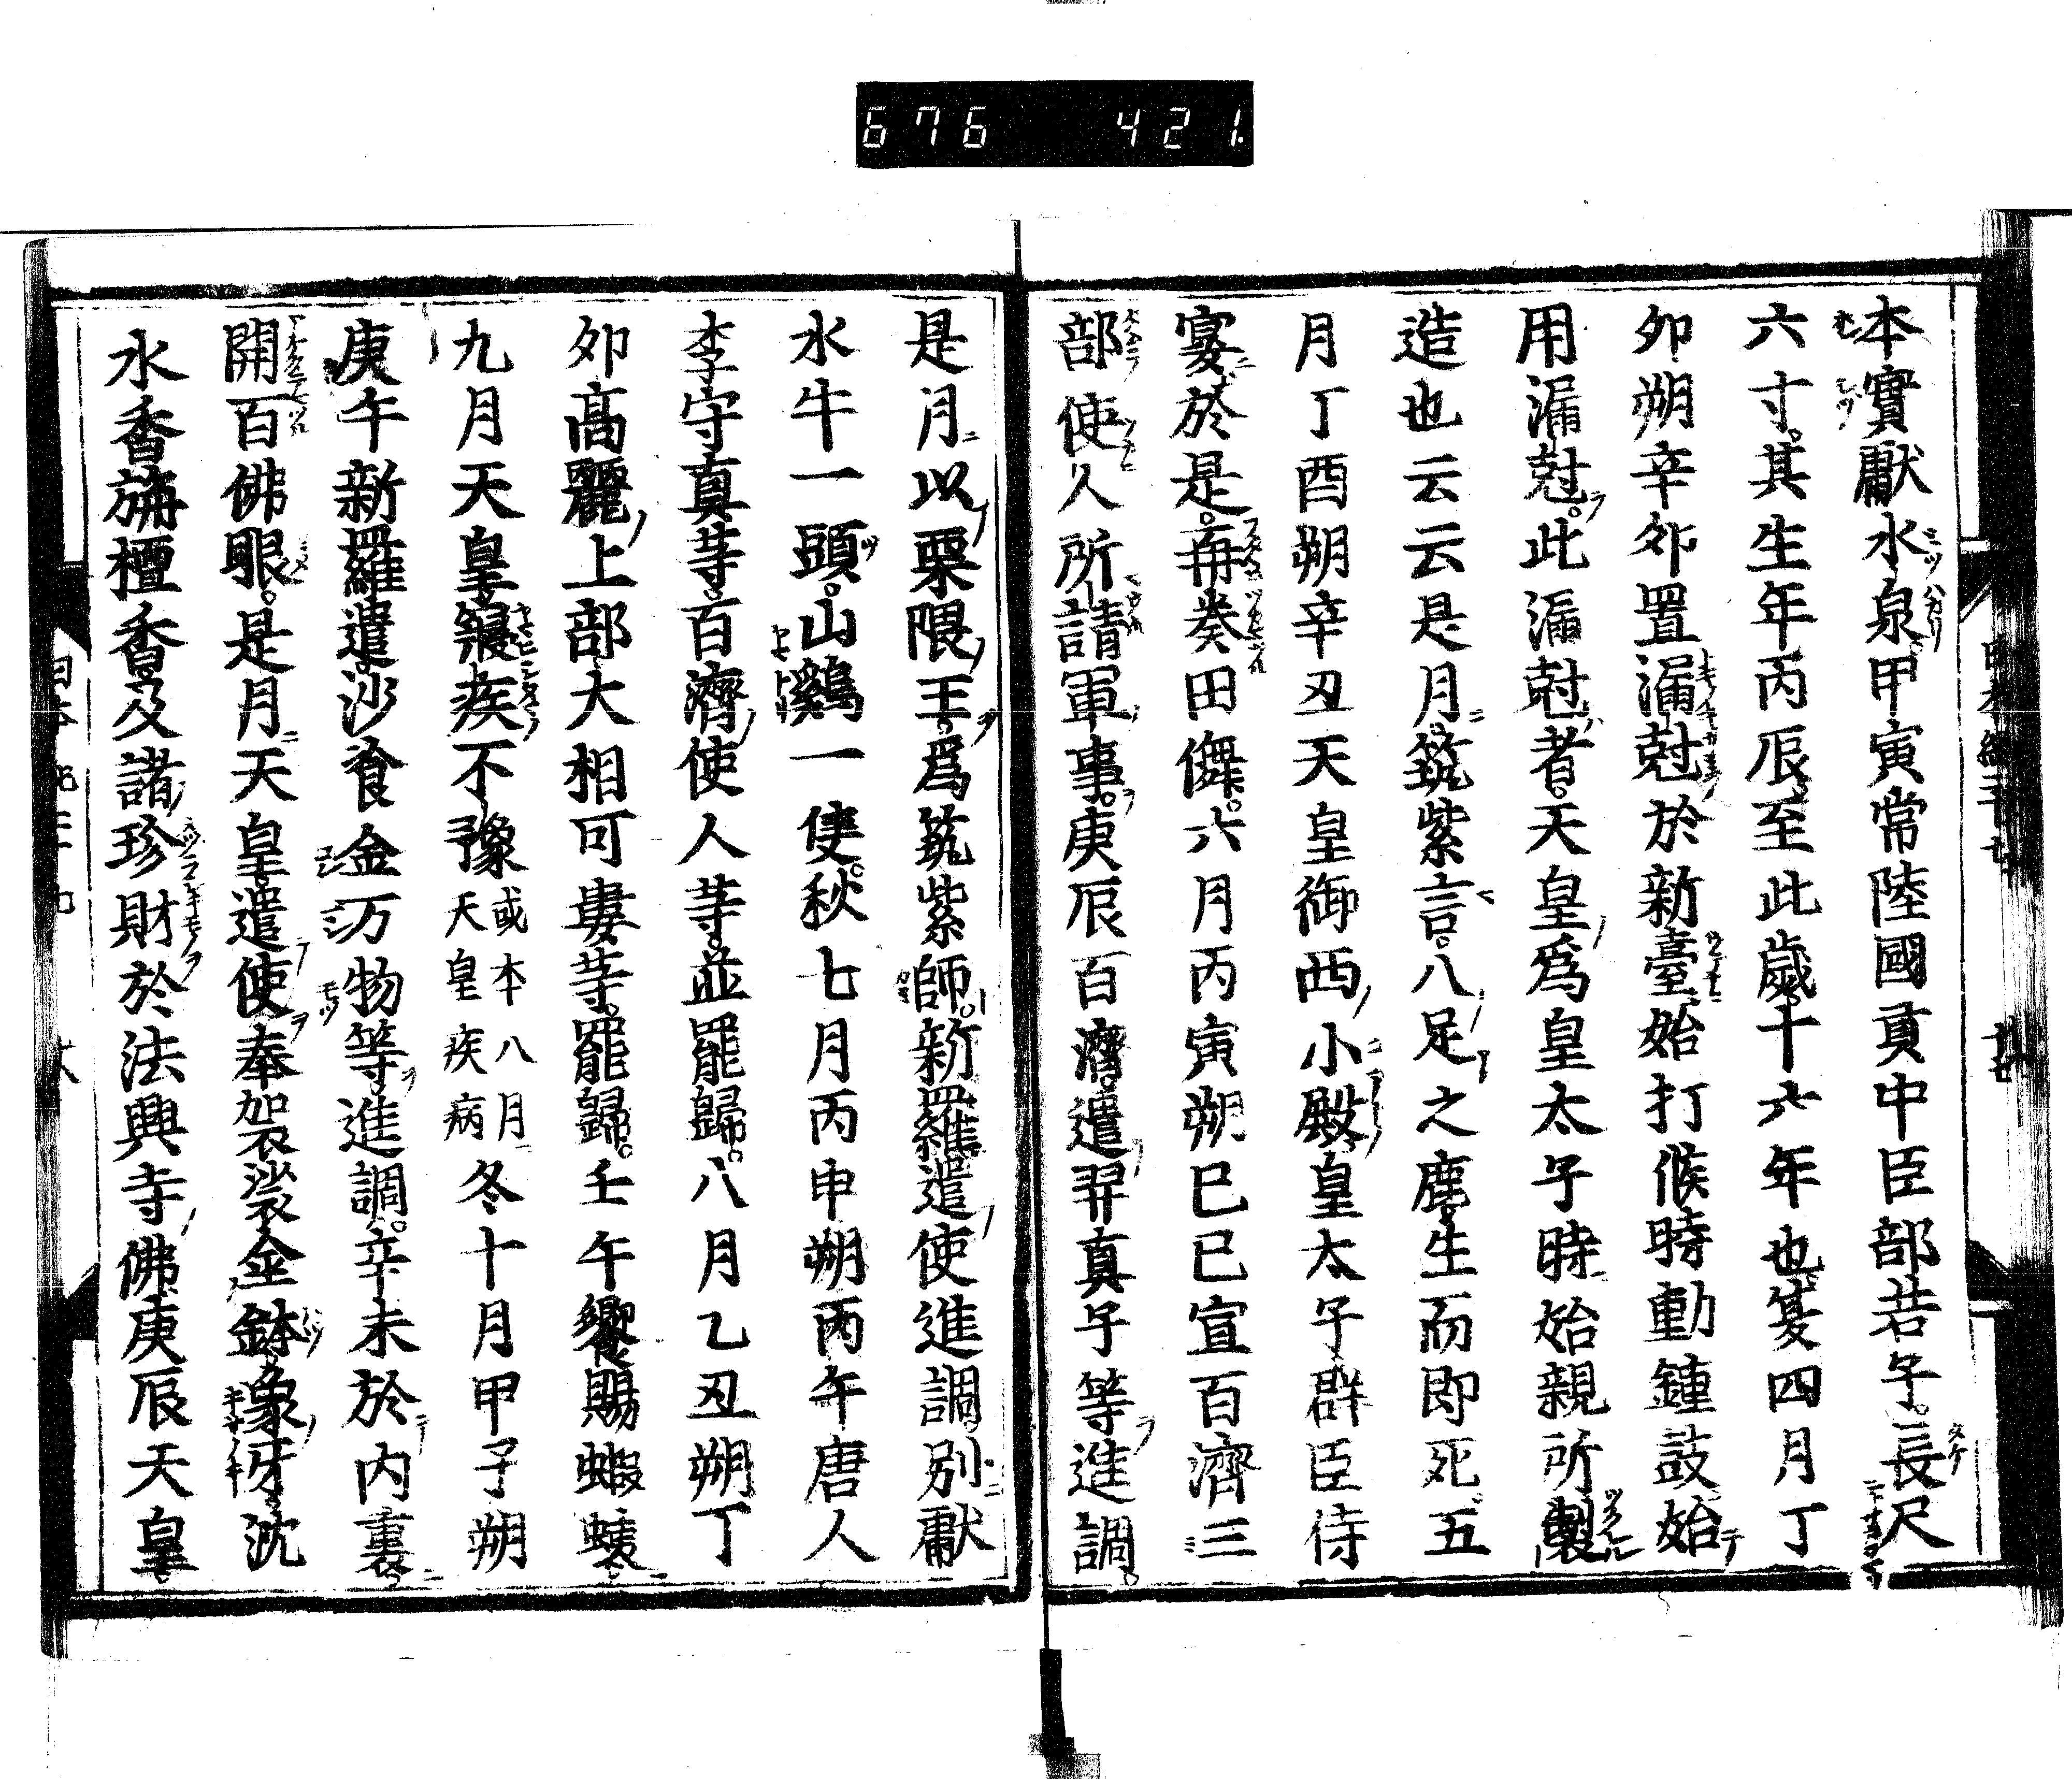 676 421
本實獻水泉甲寅常陸國貢中臣部若子長尺
六寸其生年丙辰至此歲十六年也夏四月丁
夘朔辛夘置漏尅於新臺始打候時動鍾鼓始
用漏尅此漏尅者天皇爲皇太子時始親所製
造也云云是月筑紫言八足之鹿生而即死五
月丁酉朔辛丑天皇御西小殿皇太子群臣侍
宴於是再奏田儛六月丙寅朔己巳宣百濟三
部使人所請軍事庚辰百濟遣羿真子等進調
是月以栗隈王爲筑紫師新羅遣使進調別獻
水牛一頭山鷄一隻秋七月丙申朔丙午唐人
李守真等百濟使人等並罷歸八月乙丑朔丁
夘高麗上部大相可婁等罷歸壬午饗賜蝦蛦
九月天皇寢疾不豫或本八月天皇疾病冬十月甲子朔
庚午新羅遣沙飡金万物等進調辛未於內裏
開百佛眼是月天皇遣使奉袈裟金鉢象牙沈
水香旃檀香及諸珍財於法興寺佛庚辰天皇